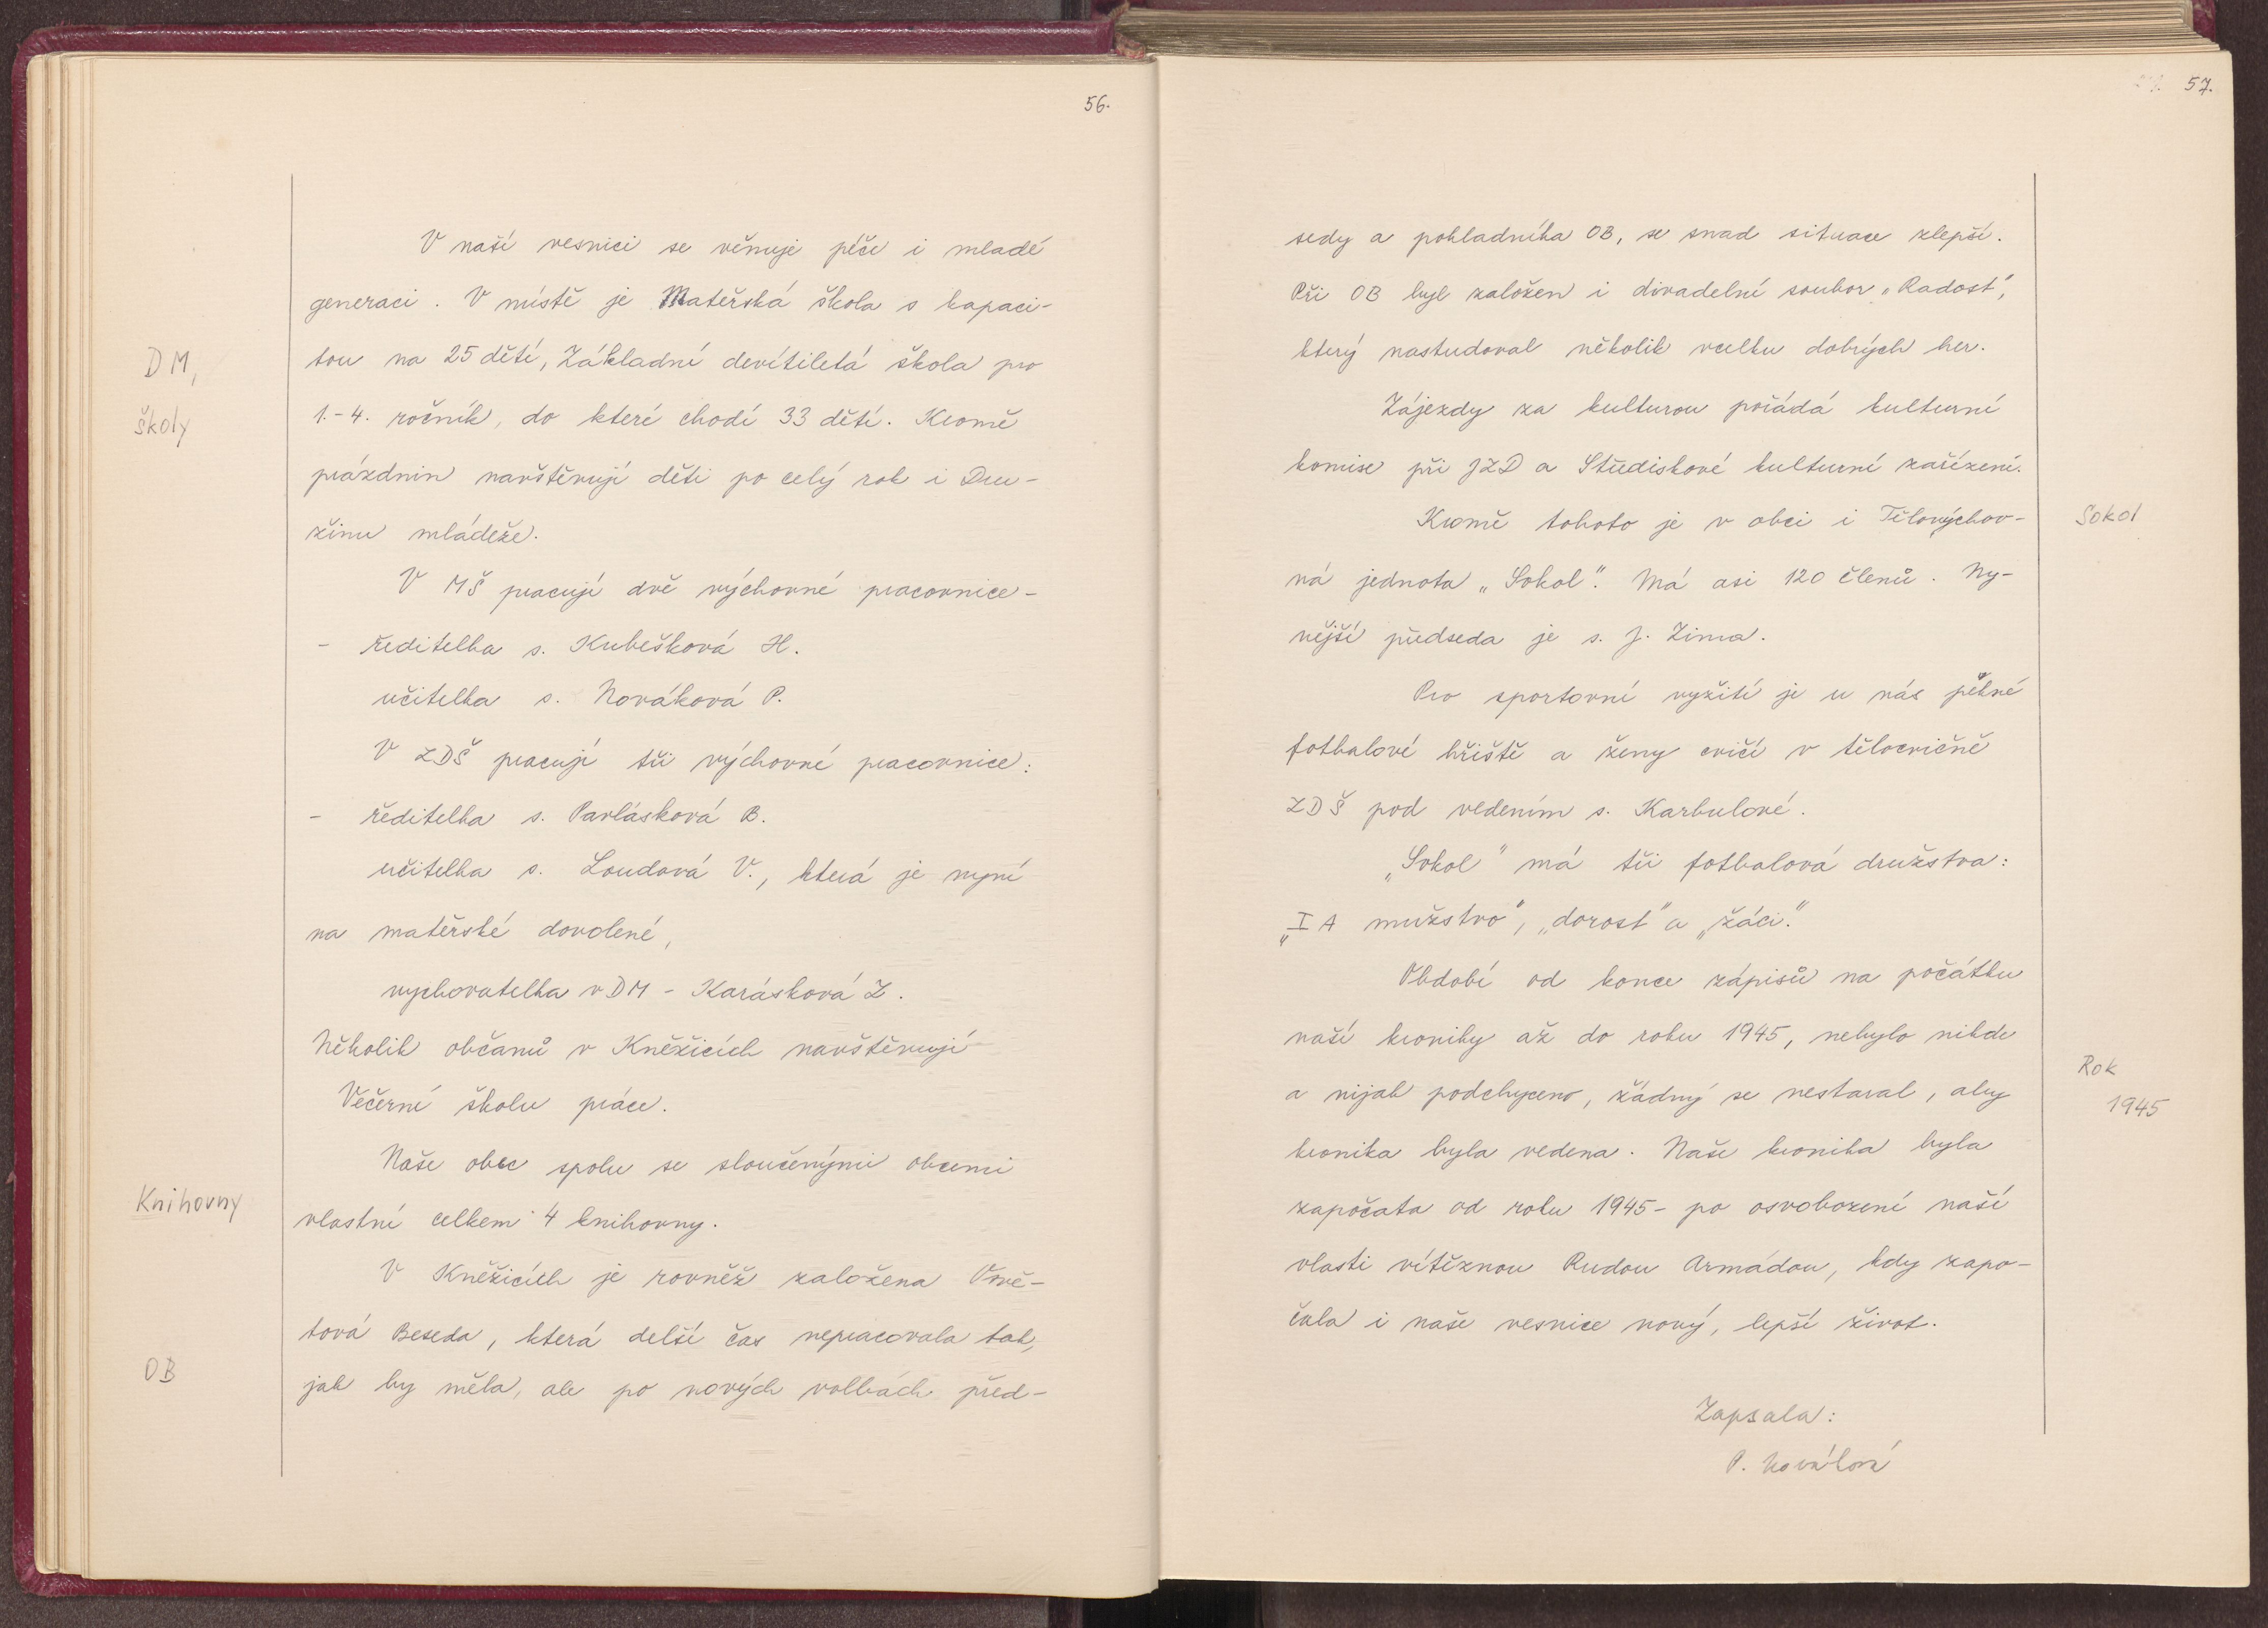 56.
V naší vesnici se věnuje péče i mladé
generaci. V místě je Mateřská škola s kapaci-
tou na 25 dětí, Základní devítiletá škola pro
DM,
1.-4. ročník, do které chodí 33 dětí. Kromě
školy
prázdnin navštěvují děti po celý rok i Dru-
žinu mládeže.
V MŠ pracují dvě výchovné pracovnice -
- ředitelka s. Kubešková H.
učitelka s. Nováková P.
V ZDŠ pracují tři výchovné pracovnice:
- ředitelka s. Pavlásková B.
učitelka s. Loudová V., která je nyní
na mateřské dovolené,
vychovatelka v DM - Karásková Z.
Několik občanů v Kněžicích navštěvují
Večerní školu práce.
Naše obec spolu se sloučenými obcemi
Knihovny
vlastní celkem 4 knihovny.
V Kněžicích je rovněž založena Osvě-
tová Beseda, která delší čas nepracovala tak,
OB
jak by měla, ale po nových volbách před-
57.
sedy a pokladníka OB, se snad situace zlepší.
Při OB byl založen i divadelní soubor „Radost",
který nastudoval několik vcelku dobrých her.
Zájezdy za kulturou pořádá kulturní
komise při JZD a Střediskové kulturní zařízení.
Kromě tohoto je v obci i Tělovýchov-
Sokol
ná jednota „Sokol". Má asi 120 členů. Ny-
nější předseda je s. J. Zima.
Pro sportovní vyžití je u nás pěkné
fotbalové hřiště a ženy cvičí v tělocvičně
ZDŠ pod vedením s. Karbulové.
„Sokol" má tři fotbalová družstva:
„I A mužstvo", „dorost" a „žáci."
Období od konce zápisů na počátku
naší kroniky až do roku 1945, nebylo nikde
Rok
a nijak podchyceno, žádný se nestaral, aby
1945
kronika byla vedena. Naše kronika byla
započata od roku 1945 - po osvobození naší
vlasti vítěznou Rudou Armádou, kdy zapo-
čala i naše vesnice nový, lepší život.
Zapsala:
P. Nováková